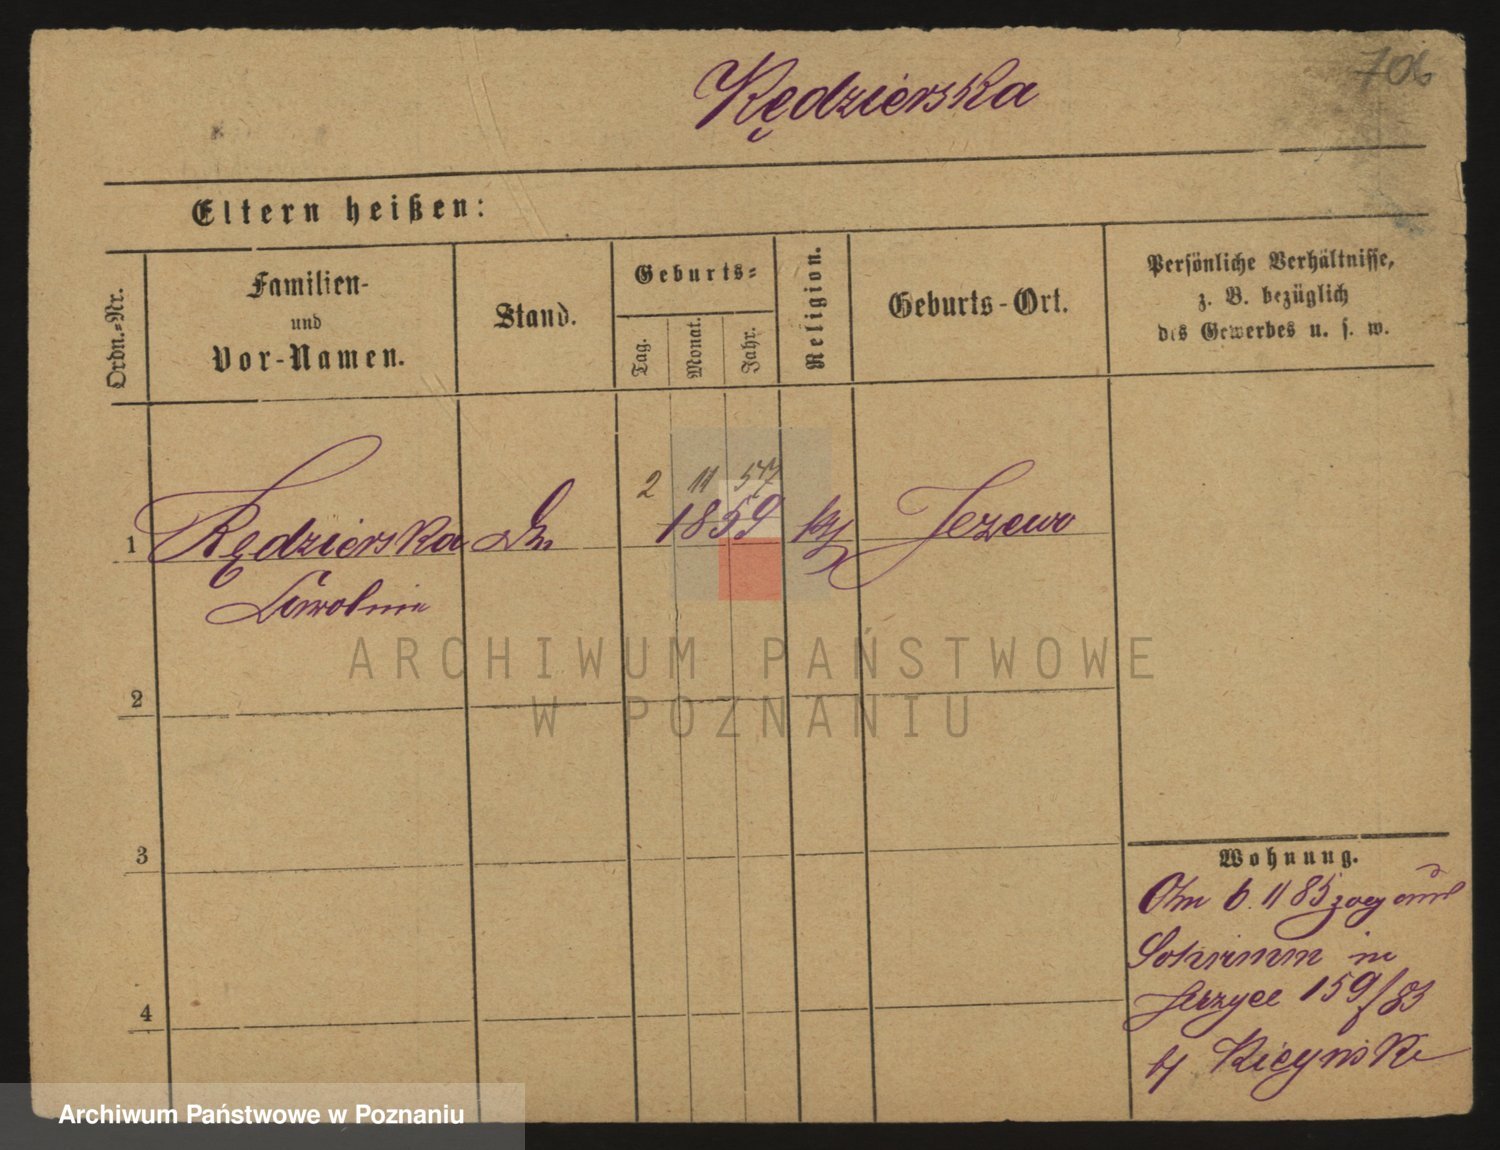 706
Kędzierska
Eltern heißen:
Ordn.=Nr.
Familien-
und
Vor-Namen.
Stand.
Geburts=
Tag.
Monat.
Jahr.
Religion.
Geburts-Ort.
Persönliche Verhältnisse,
z. B. bezüglich
des Gewerbes u. s. w.
2 11 57
1 Kędzierska 1859 Jezewo
ARCHIWUM PAŃSTWOWE
W POZNANIU
2
3
4
Wohnung.
6. 11 85 zog aus
in
Jerzyce 159/83
Archiwum Państwowe w Poznaniu